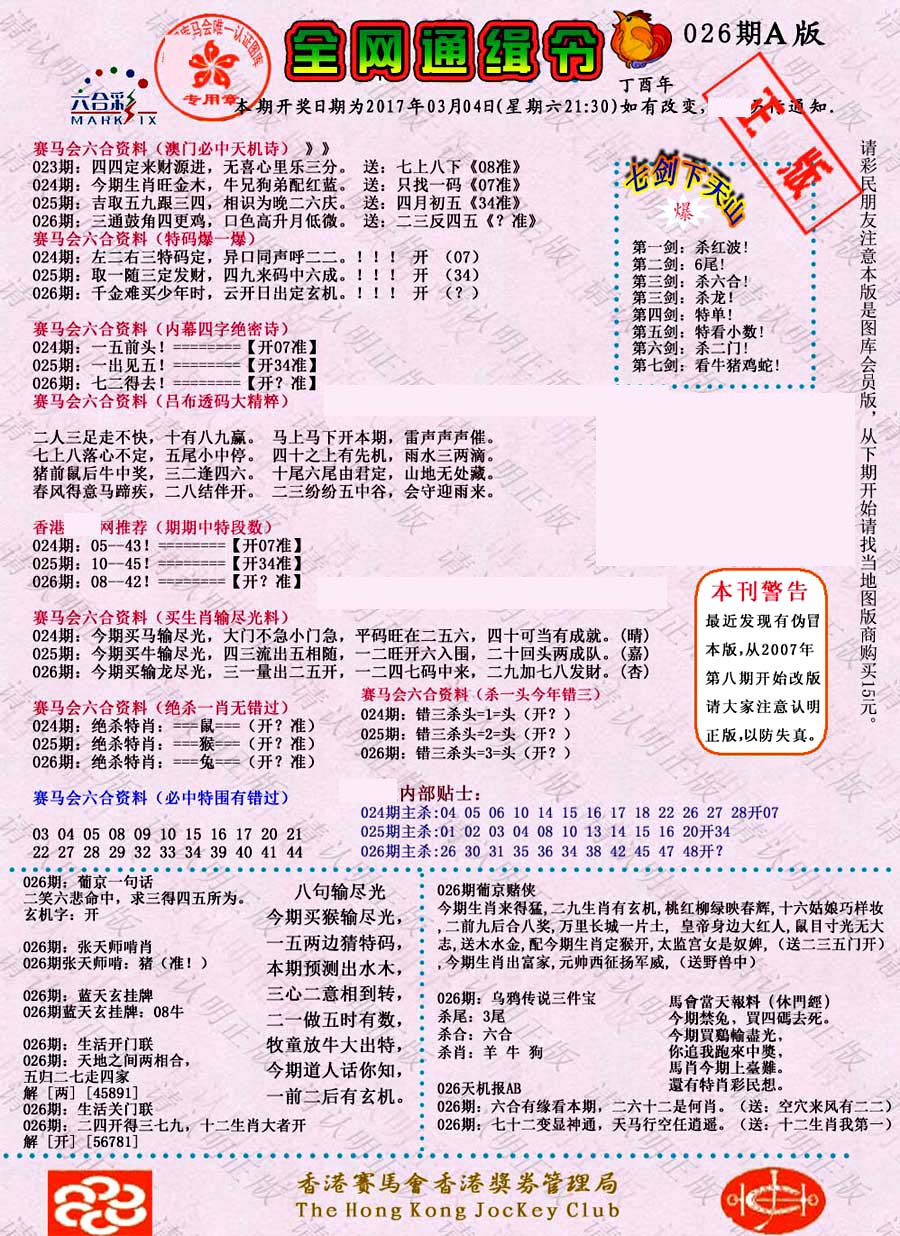 全网通缉令
026期A版
丁酉年
六合彩
MARK SIX
专用章
本期开奖日期为2017年03月04日(星期六21:30)如有改变,
通知.
正版
赛马会六合资料（澳门必中天机诗）》》
023期: 四四定来财源进，无喜心里乐三分。 送: 七上八下《08准》
024期: 今期生肖旺金木，牛兄狗弟配红蓝。 送: 只找一码《07准》
025期: 吉取五九跟三四，相识为晚二六庆。 送: 四月初五《34准》
026期: 三通鼓角四更鸡，口色高升月低微。 送: 二三反四五《? 准》
赛马会六合资料（特码爆一爆）
024期: 左二右三特码定，异口同声呼二二。！！！ 开 （07）
025期: 取一随三定发财，四九来码中六成。！！！ 开 （34）
026期: 千金难买少年时，云开日出定玄机。！！！ 开 （? ）
七剑下天山
爆
第一剑: 杀红波!
第二剑: 6尾!
第三剑: 杀六合!
第三剑: 杀龙!
第四剑: 特单!
第五剑: 特看小数!
第六剑: 杀二门!
第七剑: 看牛猪鸡蛇!
请彩民朋友注意本版是图库会员版，从下期开始请找当地图版商购买15元。
赛马会六合资料（内幕四字绝密诗）
024期: 一五前头! ========【开07准】
025期: 一出见五! ========【开34准】
026期: 七二得去! ========【开? 准】
赛马会六合资料（吕布透码大精粹）
二人三足走不快，十有八九赢。 马上马下开本期，雷声声声催。
七上八落心不定，五尾小中停。 四十之上有先机，雨水三两滴。
猪前鼠后牛中奖，三二逢四六。 十尾六尾由君定，山地无处藏。
春风得意马蹄疾，二八结伴开。 二三纷纷五中谷，会守迎雨来。
香港 网推荐（期期中特段数）
024期: 05--43! ========【开07准】
025期: 10--45! ========【开34准】
026期: 08--42! ========【开? 准】
赛马会六合资料（买生肖输尽光料）
024期: 今期买马输尽光，大门不急小门急，平码旺在二五六，四十可当有成就。(晴)
025期: 今期买牛输尽光，四三流出五相随，一二旺开六入围，二十回头两成队。(嘉)
026期: 今期买输龙尽光，三一量出二五开，一二四七码中来，二九加七八发财。(杏)
本刊警告
最近发现有伪冒
本版,从2007年
第八期开始改版
请大家注意认明
正版,以防失真。
赛马会六合资料（绝杀一肖无错过）
024期: 绝杀特肖: ===鼠===（开? 准）
025期: 绝杀特肖: ===猴===（开? 准）
026期: 绝杀特肖: ===兔===（开? 准）
赛马会六合资料（杀一头今年错三）
024期: 错三杀头=1=头（开? ）
025期: 错三杀头=2=头（开? ）
026期: 错三杀头=3=头（开? ）
赛马会六合资料（必中特围有错过）
03 04 05 08 09 10 15 16 17 20 21
22 27 28 29 32 33 34 39 40 41 44
内部贴士:
024期主杀:04 05 06 10 14 15 16 17 18 22 26 27 28开07
025期主杀:01 02 03 04 08 10 13 14 15 16 20开34
026期主杀:26 30 31 35 36 34 38 42 45 47 48开?
026期: 葡京一句话
二笑六悲命中，求三得四五所为。
玄机字: 开
026期: 张天师啃肖
026期张天师啃: 猪（准! ）
026期: 蓝天玄挂牌
026期蓝天玄挂牌: 08牛
026期: 生活开门联
026期: 天地之间两相合，
五归二七走四家
解 [两] [45891]
026期: 生活关门联
026期: 二四开得三七九，十二生肖大者开
解 [开] [56781]
八句输尽光
今期买猴输尽光,
一五两边猜特码,
本期预测出水木,
三心二意相到转,
二一做五时有数,
牧童放牛大出特,
今期道人话你知,
一前二后有玄机。
026期葡京赌侠
今期生肖来得猛,二九生肖有玄机,桃红柳绿映春辉,十六姑娘巧样妆
,二前九后合八奖,万里长城一片土, 皇帝身边大红人,鼠目寸光无大
志,送木水金,配今期生肖定猴开,太监宫女是奴婢,（送二三五门开）
,今期生肖出富家,元帅西征扬军威,（送野兽中）
026期: 乌鸦传说三件宝
杀尾: 3尾
杀合: 六合
杀肖: 羊 牛 狗
馬會當天報料（休門經）
今期禁兔、買四碼去死。
今期買鷄輸盡光,
你追我跑來中獎,
馬肖今期上臺難。
還有特肖彩民想。
026天机报AB
026期: 六合有缘看本期，二六十二是何肖。（送: 空穴来风有二二）
026期: 七十二变显神通，天马行空任逍遥。（送: 十二生肖我第一）
香港賽馬會香港獎券管理局
The Hong Kong JocKey Club